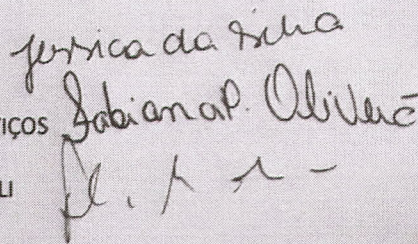 Jessica da Silva
IÇOS Fabiana P. Oliveira
LI